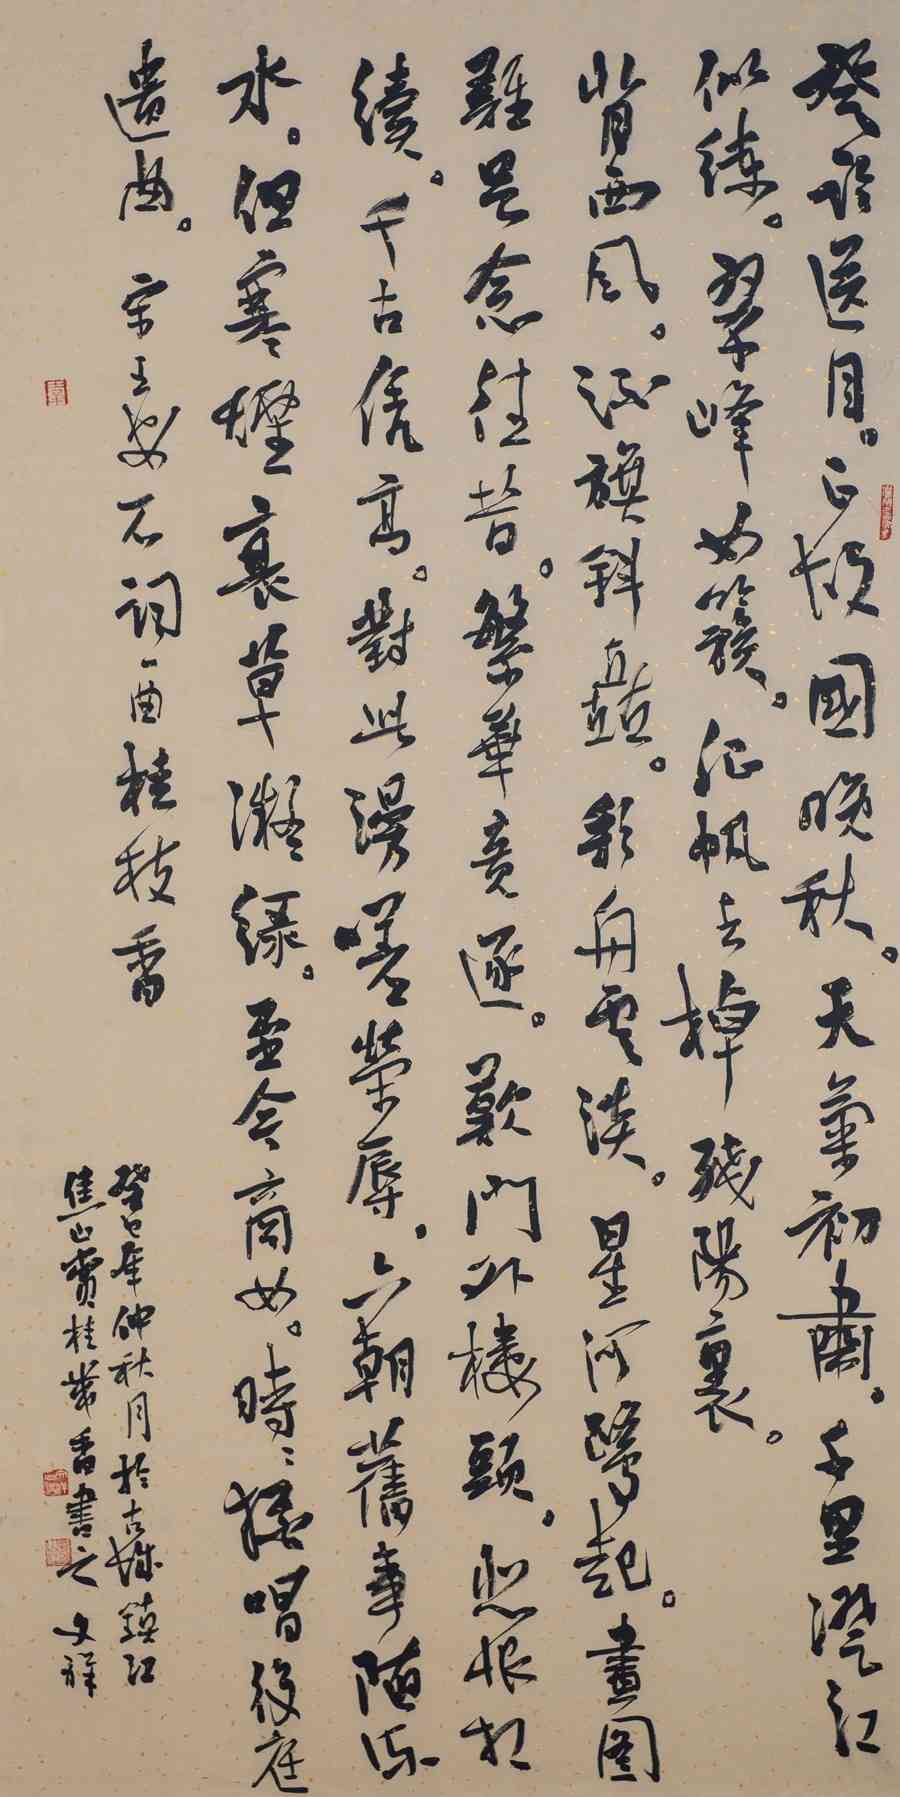 登臨送目。正故國晚秋。天氣初肅。千里澄江
似練。翠峰如簇。征帆去棹殘陽裏。
背西風。酒旗斜矗。彩舟雲淡。星河鷺起。畫图
難足念往昔。繁華竞逐。歎門外樓頭。悲恨相
續。千古凭高。對此漫嗟榮辱。六朝舊事隨流
水。但寒煙衰草凝綠。至今商女。時〻猶唱後庭
遺曲。宋王安石詞一首桂枝香
癸巳年仲秋月於古城鎮江
焦山賞桂香書之 文祥